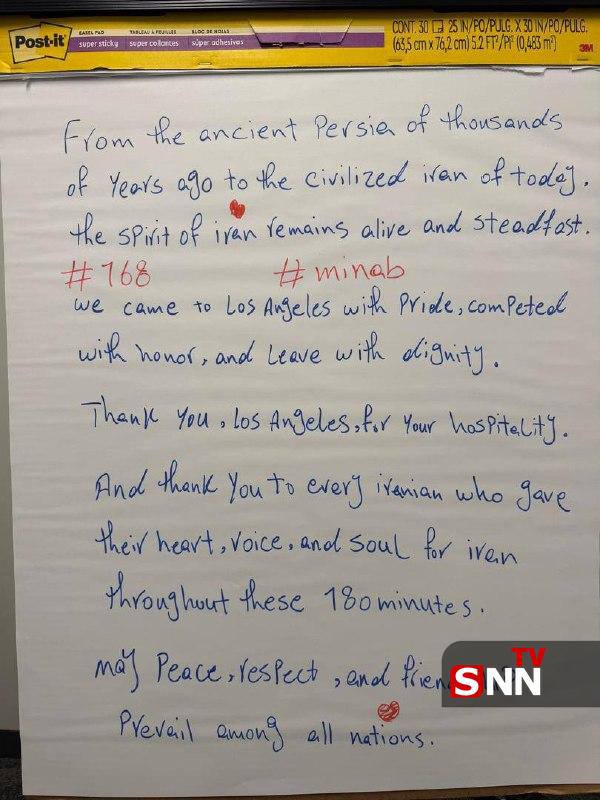 Post-it
EASEL PAD TABLEAU À FEUILLES BLOC DE HOJAS
super sticky super collantes súper adhesivas
CONT. 30 25 IN/PO/PULG. X 30 IN/PO/PULG.
(63,5 cm x 76,2 cm) 5.2 FT²/PI² (0,483 m²)
3M
From the ancient Persia of thousands
of years ago to the civilized iran of today.
the spirit of iran remains alive and steadfast.
#168 #minab
we came to Los Angeles with Pride, competed
with honor, and Leave with dignity.
Thank you, Los Angeles, for your hospitality.
And thank you to every iranian who gave
their heart, voice, and soul for iran
throughout these 180 minutes.
may Peace, respect, and
Prevail among all nations.
SNN TV